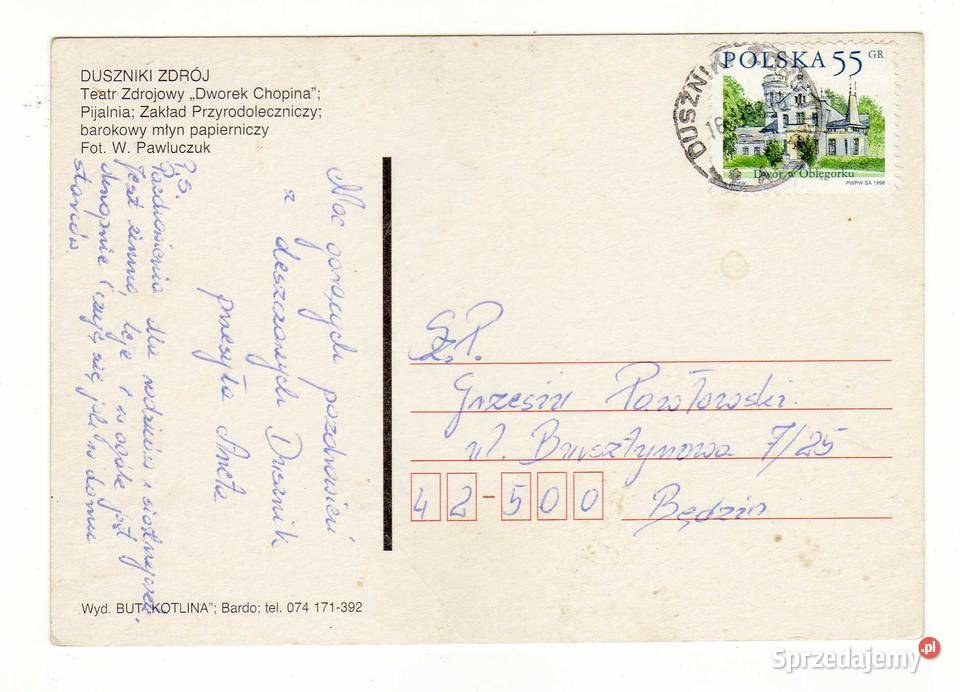 DUSZNIKI ZDRÓJ
Teatr Zdrojowy „Dworek Chopina";
Pijalnia; Zakład Przyrodoleczniczy;
barokowy młyn papierniczy
Fot. W. Pawluczuk
POLSKA 55 GR
Dwór w Oblęgorku
PWPW SA 1998
DUSZNIKI ZDRÓJ
Moc gorących pozdrowień
z deszczowych Dusznik
przesyła Aneta
P.S.
Pozdrowienia dla rodziców i siostrzyczki.
Jest zimno, leje i w ogóle jest
okropnie (czuję się jak w domu
starców.
Sz.P.
Grzesiu Pawłowski
ul. Bursztynowa 7/25
42-500 Będzin
Wyd. BUT "KOTLINA"; Bardo; tel. 074 171-392
Sprzedajemy.pl